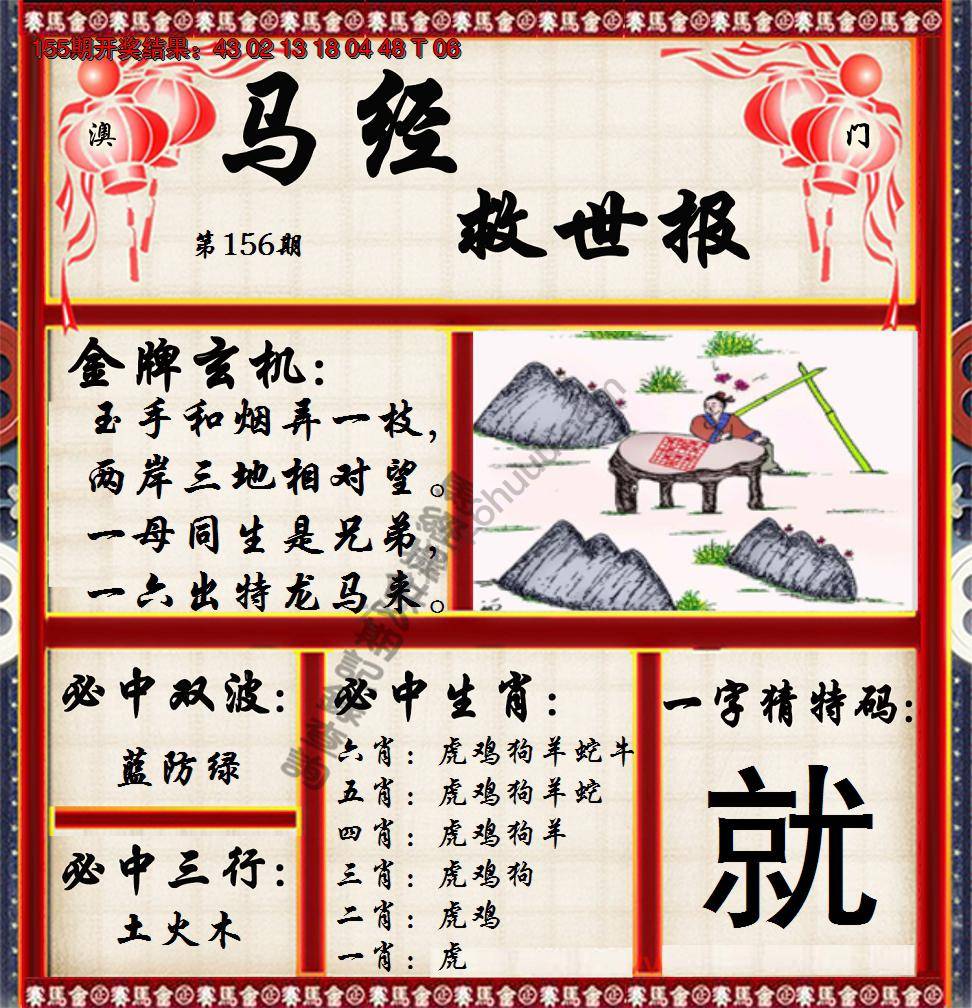 155期开奖结果：43 02 13 18 04 48 T 06
澳
门
马经
救世报
第156期
金牌玄机：
玉手和烟弄一枝，
两岸三地相对望。
一母同生是兄弟，
一六出特龙马来。
必中双波：
蓝防绿
必中三行：
土火木
必中生肖：
六肖：虎鸡狗羊蛇牛
五肖：虎鸡狗羊蛇
四肖：虎鸡狗羊
三肖：虎鸡狗
二肖：虎鸡
一肖：虎
一字猜特码：
就